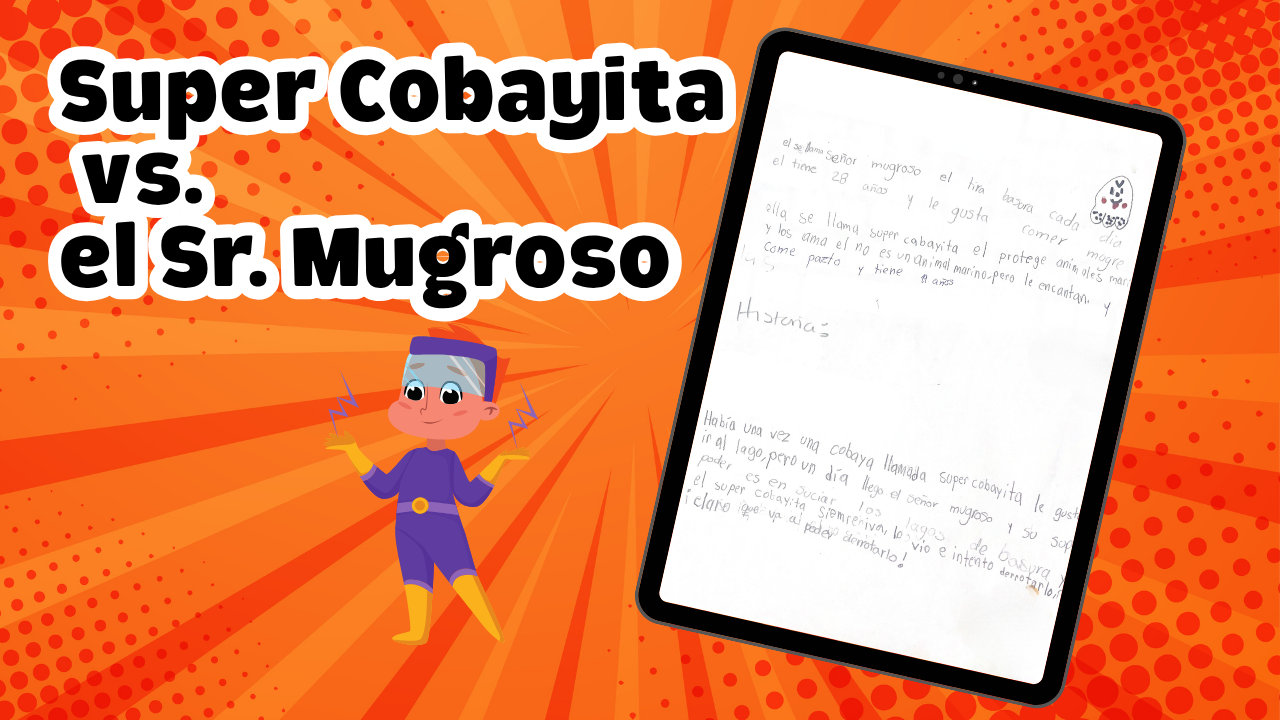 Super Cobayita
vs.
el Sr. Mugroso
el se llama señor mugroso el tira basura cada día
el tiene 28 años y le gusta comer mugre
ella se llama super cobayita el protege animales mar
y los ama el no es un animal marino, pero le encantan. y
come pazto y tiene 11 años
Historia:
Había una vez una cobaya llamada super cobayita le gusta
ir al lago, pero un día llego el señor mugroso y su sup
poder es en suciar los lagos de basura y
el super cobayita lo vio e intento derrotarlo,
¡claro que va a poder derrotarlo!